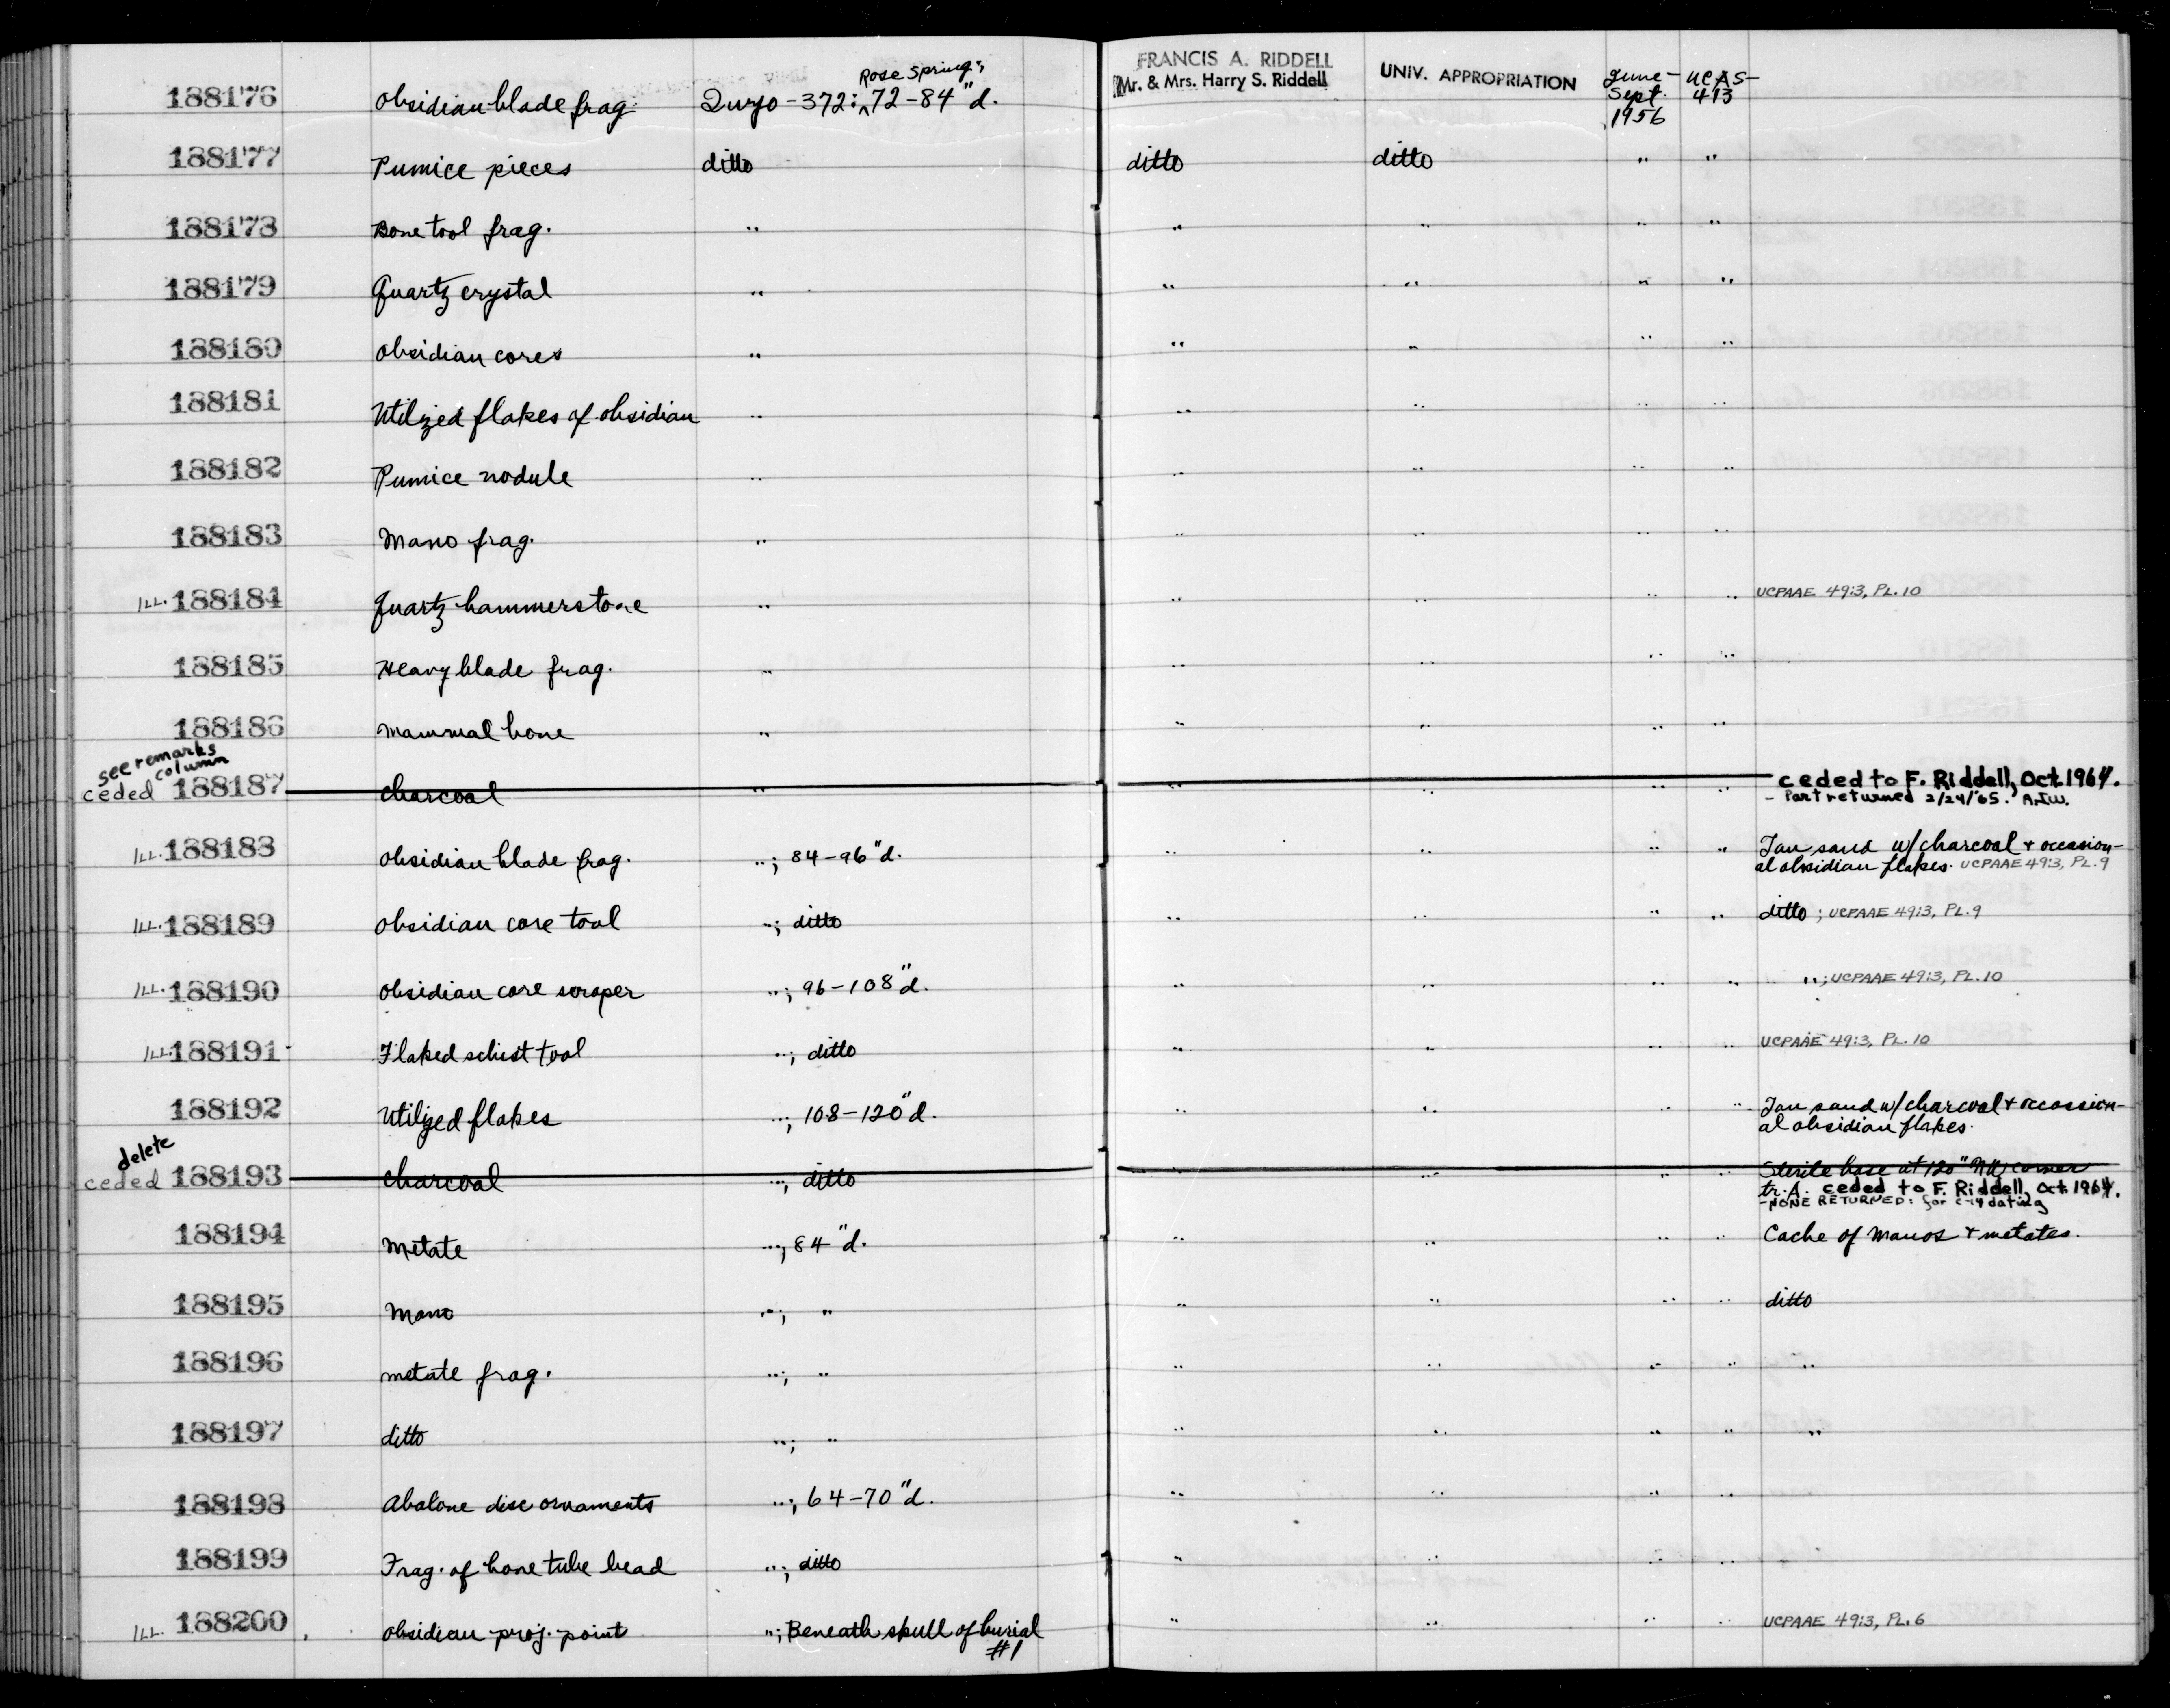 188176 obsidian blade frag. Inyo-372: Rose Spring; 72-84"d. FRANCIS A. RIDDELL Mr. & Mrs. Harry S. Riddell UNIV. APPROPRIATION June-Sept. 1956 UCAS-413
188177 Pumice pieces ditto ditto ditto " "
188178 Bone tool frag. " " " " "
188179 Quartz crystal " " " " "
188180 obsidian cores " " " " "
188181 Utilzed flakes of obsidian " " " " "
188182 Pumice nodule " " " " "
188183 Mano frag. " " " " "
ILL. 188184 Quartz hammerstone " " " " " UCPAAE 49:3, PL. 10
188185 Heavy blade frag. " " " " "
188186 mammal bone " " " " "
see remarks column
ceded 188187 charcoal " " " " " ceded to F. Riddell, Oct. 1964.
- Part returned 2/24/65. A.J.W.
ILL. 188188 obsidian blade frag. "; 84-96"d. " " " " Tan sand w/charcoal + occasion-
al obsidian flakes. UCPAAE 49:3, PL. 9
ILL. 188189 obsidian core tool "; ditto " " " " ditto; UCPAAE 49:3, PL. 9
ILL. 188190 obsidian core scraper "; 96-108"d. " " " " "; UCPAAE 49:3, PL. 10
ILL. 188191 Flaked schist tool "; ditto " " " " UCPAAE 49:3, PL. 10
188192 Utilized flakes "; 108-120"d. " " " " Tan sand w/charcoal + occassion-
al obsidian flakes.
delete
ceded 188193 charcoal "; ditto " " " " Sterile base at 120" NW corner
tr. A. ceded to F. Riddell, Oct. 1964.
-NONE RETURNED: for C-14 dating
188194 Metate "; 84"d. " " " " Cache of manos + metates.
188195 Mano "; " " " " " ditto
188196 metate frag. "; " " " " " "
188197 ditto "; " " " " " "
188198 Abalone disc ornaments "; 64-70"d. " " " "
188199 Frag. of bone tube bead "; ditto " " " "
ILL. 188200 obsidian proj. point "; Beneath skull of burial #1 " " " " UCPAAE 49:3, PL. 6